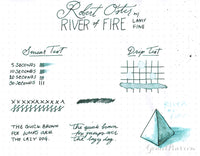 Robert Oster w/
RIVER of FIRE LAMY FINE
Smear Test
Drip Test
5 SECONDS
10 SECONDS
20 SECONDS
30 SECONDS
XXXXXXXXXXX
THE QUICK BROWN
FOX JUMPS OVER
THE LAZY DOG.
the quick brown
fox jumps over
the lazy dog